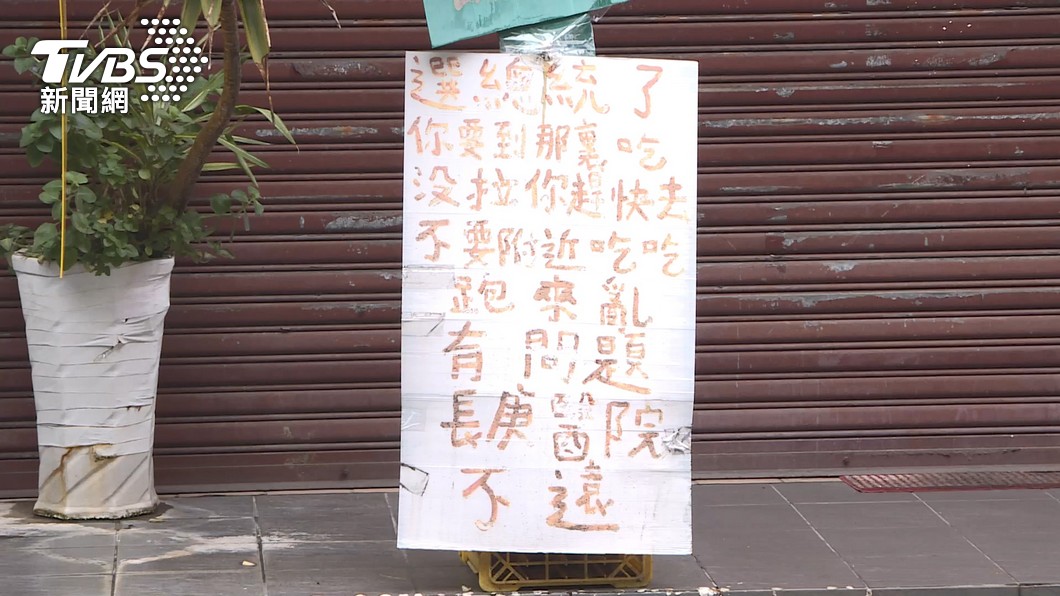 TVBS
新聞網
選總統了
你要到那裏吃
没拉你趕快去
不要附近吃吃
跑來亂
有問題
長庚醫院
不遠